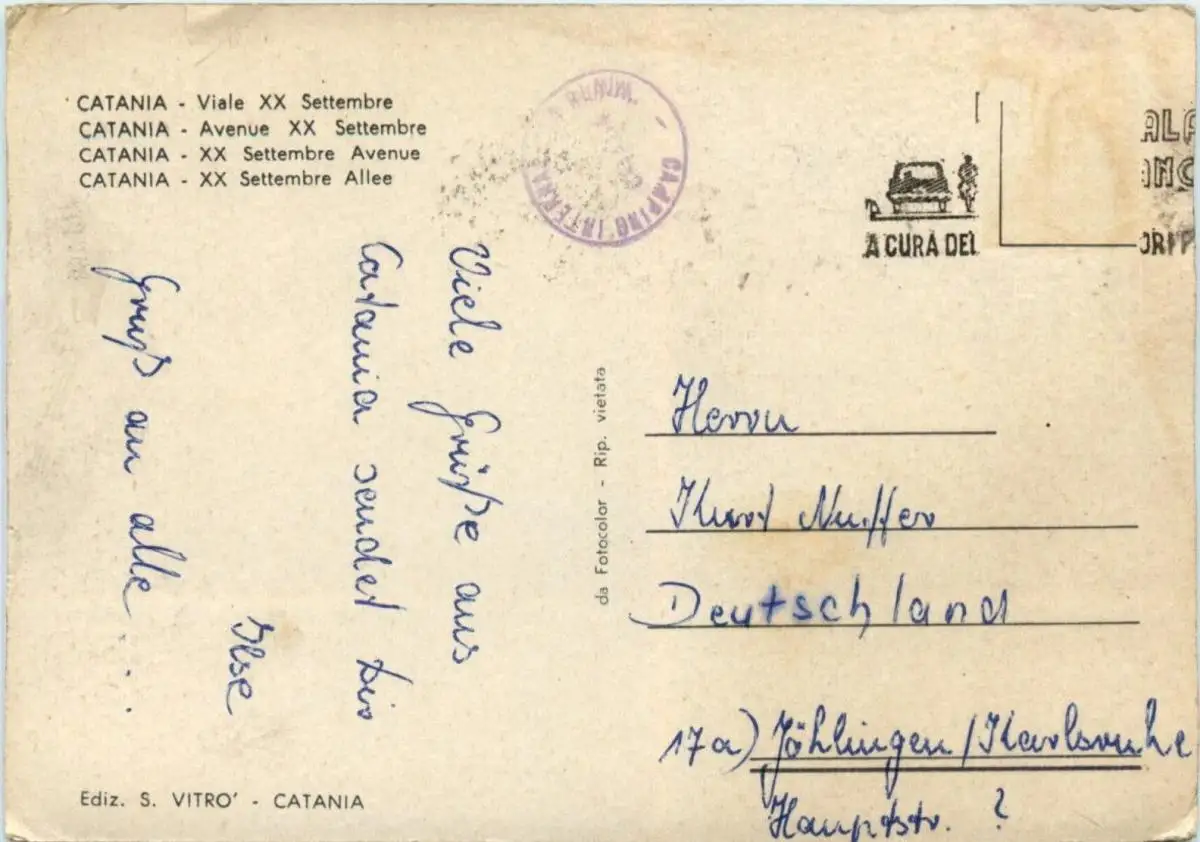 CATANIA - Viale XX Settembre
CATANIA - Avenue XX Settembre
CATANIA - XX Settembre Avenue
CATANIA - XX Settembre Allee
CAMPING INTERNA
A CURA DEL
Viele Grüße aus
Catania sendet Dir
Ilse
Gruß an alle.
da Fotocolor - Rip. vietata
Herrn
Kurt Nuffer
Deutschland
17a) Jöhlingen/Karlsruhe
Hauptstr. ?
Ediz. S. VITRO' - CATANIA